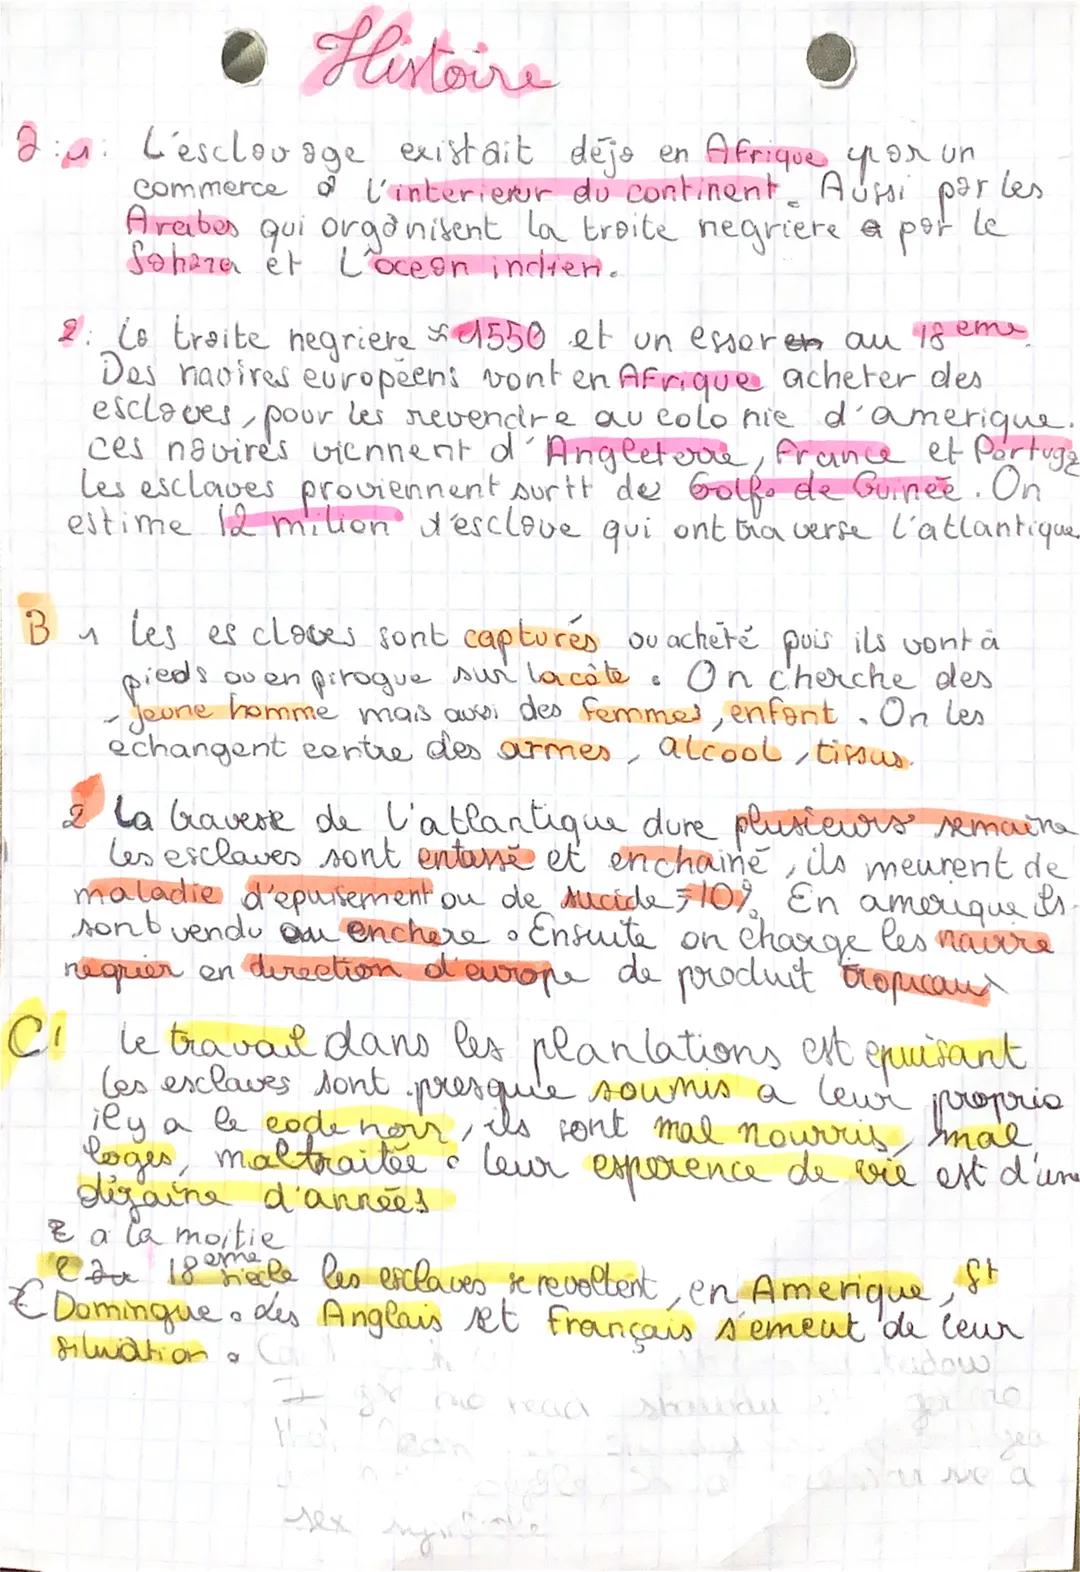 Histoire
a:1: L'esclavage existait déjà en Afrique par un
commerce à l'interieur du continent. Aussi par les
Arabes qui organisent la traite negriere par le
Sahara et L'ocean indien.
2: La traite negriere ≈ 1550 et un essor au 18 eme
Des navires européens vont en Afrique acheter des
esclaves, pour les revendre au colonie d'amerique.
ces navires viennent d'Angleterre, France et Portuga
Les esclaves proviennent surtt de Golfe de Guinée. On
estime 12 milion d'esclave qui ont traverse l'atlantique
B 1 Les esclaves sont capturés ou achété puis ils vont à
pieds ou en pirogue sur la côte. On cherche des
jeune homme mais aussi des femmes, enfant. On les
echangent contre des armes, alcool, tissus.
2 La traverse de l'atlantique dure plusieurs semaine
les esclaves sont entassé et enchainé, ils meurent de
maladie d'epuisement ou de sucide 10% En amerique ils
sont vendu au enchere. Ensuite on charge les navire
negrier en direction d'europe de produit tropicaux
C1 Le travail dans les plantations est epuisant
les esclaves sont presque soumis a leur proprio
il y a le code noir, ils sont mal nourris, mal
loges, maltraitée. leur esperence de vie est d'une
dizaine d'années
a la moitie
18 eme siecle les esclaves se revoltent, en Amerique, St
Domingue. des Anglais et Français s'emeut de leur
situation.